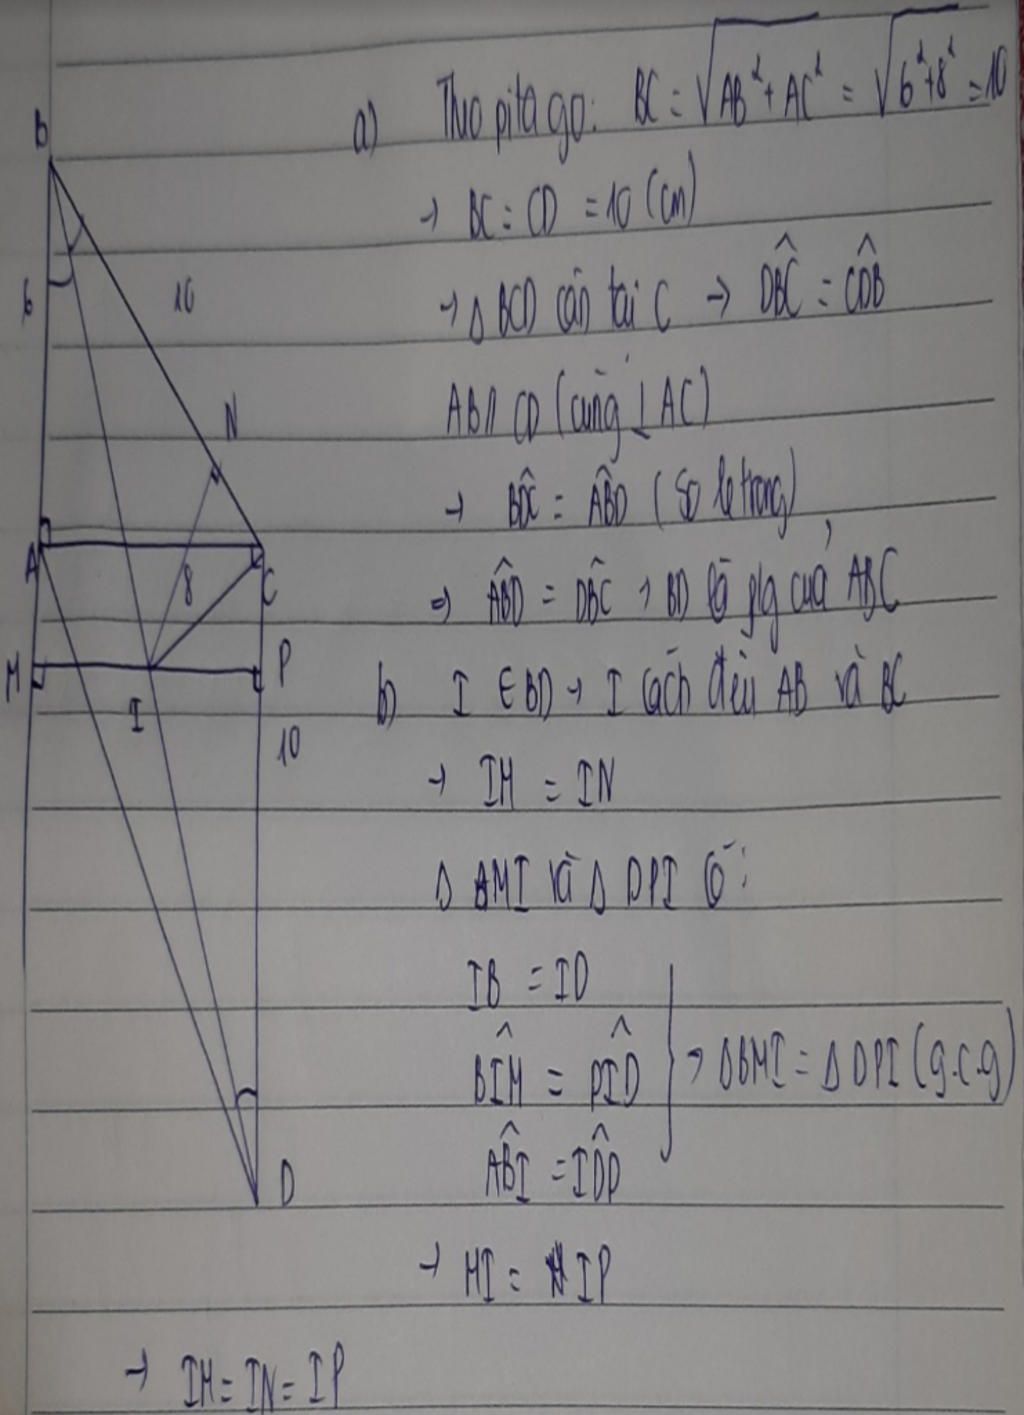 B
6
10
N
A
8
C
M
I
P
10
D
a) Theo pitago: BC = √AB² + AC² = √6²+8² = 10
→ BC = CD = 10 (cm)
→ Δ BCD cân tại C → DB̂C = CD̂B
AB // CD (cùng ⊥ AC)
→ BD̂C = AB̂D (so le trong)
⇒ AB̂D = DB̂C → BD là p/g của ABC
b) I ∈ BD → I cách đều AB và BC
→ IM = IN
Δ BMI và Δ DPI có:
IB = ID
BÎM = PÎD
AB̂I = ID̂P
→ ΔBMI = Δ DPI (g.c.g)
→ MI = IP
→ IM = IN = IP